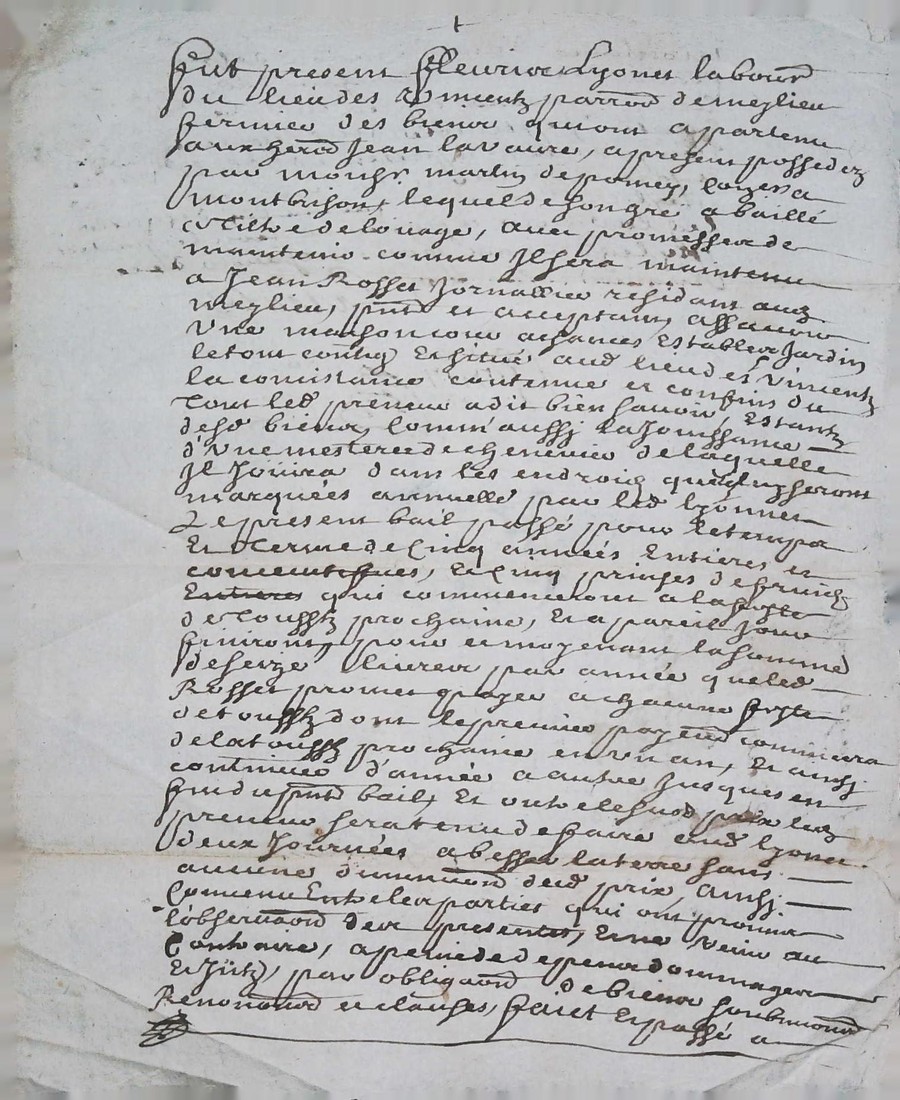 Fut present Fleurie Lyonet labour
du lieu des Vincentz parro d de meylieu
fermier des biens quiont apartenu
aux her d Jean lavaure, apresent possedez
par monsr martin depomey, bourg a
montbrison, lequel de son gré a baillé
a tiltre de louage, avec promesse de
maintenir comme Il sera maintenu
a Jean Rosset Jornallier residant aud
meylieu, pnt et acceptant, assavoir
Une maison cour aisances Estables Jardin
le tout contig Et situé aud lieu des Vincentz
la consistance contenue et confins du
tout led preneur a dit bien savoir Estantz
desd biens, Comm'aussy la Jouissance
d'Une mesteree de chenevier de laquelle
Il Jouira dans les endroitz quy luy seront
marquées annuelle par led Lyonnet
Le present bail passé pour le temps
Et terme de Cinq années Entieres et
consecutifves, Et Cinq prinses de fruitz
Entieres qui commenceront a la feste
de tousstz prochaine, Et a pareil Jour
finiront, pour et moyenant la somme
de seize livres par année que led
Rosset promet payer a chacune feste
de tousstz dont le premier payem d commencera
de la tousstz prochaine en un an, Et ainsy
continuer d'année a autre Jusques en
fin du pnt bail, Et outre le susd prix led
preneur sera tenu de faire aud Lyonet
deux Journées a besser la terre sans
aucune diminuon d dud prix, Ainsy
Convenu Entre les parties qui ont promis
l'observaon d des presentes, Et ne Venir au
Contraire, a peine de depens dommages
Et Jntz, par obligaon d de biens soubmon d
Renonaon d et clauses, faict Et passé a